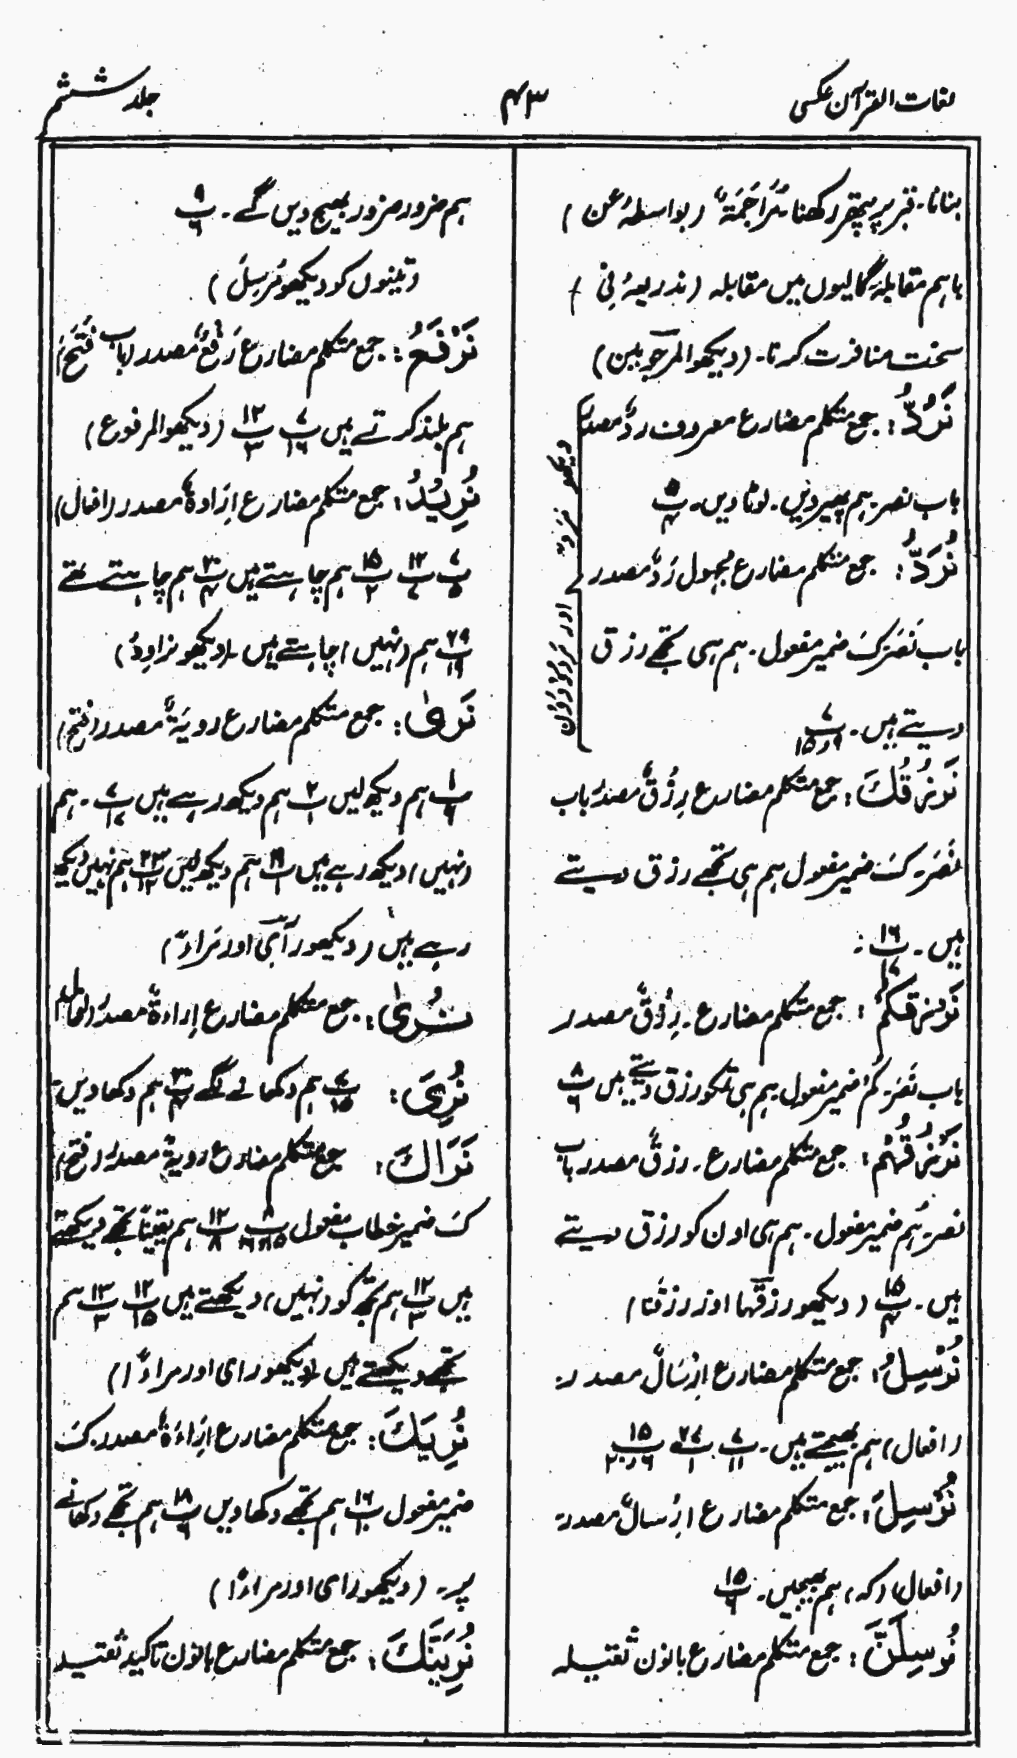 لغات القرآن عکسی
۴۳
جلد ششم
بنانا۔ قبر پر پتھر رکھنا مُرَاجَمَةٌ (بواسطہ عن)
باہم مقابلہ گالیوں میں مقابلہ (بذریعہ فِی)
سخت منافرت کرنا۔ (دیکھو المرجومین)
نَرُدُّ: جمع متکلم مضارع معروف رَدٌّ مصدر
باب نصر۔ ہم پھیر دیں۔ لوٹا دیں۔ پ
نُرَدُّ: جمع متکلم مضارع مجہول رَدٌّ مصدر
دیکھو نرد اور مردودون
باب نَصَرَ کَ ضمیر مفعول۔ ہم ہی تجھے رزق
دیتے ہیں۔ ۷/پ ۱۵و۹
نَرْزُقُكَ: جمع متکلم مضارع رِزْقٌ مصدر باب
نَصَرَ۔ کَ ضمیر مفعول ہم ہی تجھے رزق دیتے
ہیں۔ ۱۶/پ ۱۷:
نَرْزُقُكُمْ: جمع متکلم مضارع۔ رِزْقٌ مصدر
باب نَصَرَ۔ کُمْ ضمیر مفعول ہم ہی تمکو رزق دیتے ہیں ۸/پ ۶
نَرْزُقُهُمْ: جمع متکلم مضارع۔ رزقٌ مصدر باب
نصر۔ ہُم ضمیر مفعول۔ ہم ہی اون کو رزق دیتے
ہیں۔ ۱۵/پ ۴ (دیکھو رزقہا اور رزقنا)
نُرْسِلُ: جمع متکلم مضارع اِرْسَالٌ مصدر
(افعال) ہم بھیجتے ہیں۔ ۷/پ ۱۱ ۲۷/پ ۱ ۱۵/پ ۲۰و۶
نُرْسِلَ: جمع متکلم مضارع ارسالٌ مصدر
(افعال) (کہ) ہم بھیجیں۔ ۱۵/پ ۶
نُرْسِلَنَّ: جمع متکلم مضارع بانون ثقیلہ
ہم ضرور ضرور بھیج دیں گے۔ ۹/پ ۶
(تینوں کو دیکھو مُرسِلَ)
نَرْفَعُ: جمع متکلم مضارع رَفْعٌ مصدر (باب فَتَحَ)
ہم بلند کرتے ہیں ۷/پ ۱۶ ۱۳/پ ۳ (دیکھو المرفوع)
نُرِيدُ: جمع متکلم مضارع اِرَادَةٌ مصدر (افعال)
۷/پ ۵ ۱۲/پ ۷ ۱۵/پ ۲ ہم چاہتے ہیں ۳۰/پ ۴ ہم چاہتے تھے
۲۹/پ ۱۹ ہم (نہیں) چاہتے ہیں۔ (دیکھو نراوِدُ)
نَرٰی: جمع متکلم مضارع رویَةٌ مصدر (فتح)
۱/پ ۶ ہم دیکھ لیں ۲/پ ۱ ہم دیکھ رہے ہیں ۷/پ ۱۷۔ ہم
(نہیں) دیکھ رہے ہیں ۱۹/پ ۱ ہم دیکھ لیں ۲۳/پ ۱۳ ہم نہیں دیکھ
رہے ہیں (دیکھو رآی اور مَراءً)
نُرِیْ: جمع متکلم مضارع اِراءۃٌ مصدر (افعال)
نُرِیَ: ۷/پ ۱۵ ہم دکھانے لگے ۳۰/پ ۴ ہم دکھا دیں
نَرَاكَ: جمع متکلم مضارع رویۃٌ مصدر (فتح)
کَ ضمیر خطاب مفعول ۸/پ ۱۶و۱۵ ۱۲/پ ۸ ہم یقیناً تجھے دیکھتے
ہیں ۱۲/پ ۳ ہم تجھ کو (نہیں) دیکھتے ہیں ۱۲/پ ۱۵ ۱۳/پ ۳ ہم
تجھے دیکھتے ہیں (دیکھو رای اور مراءً)
نُرِيَكَ: جمع متکلم مضارع اِرَاءَةٌ مصدر۔ کَ
ضمیر مفعول ۱۶/پ ۱۰ ہم تجھے دکھا دیں ۱۸/پ ۶ ہم تجھے دکھانے
پر۔ (دیکھو رای اور مراءً)
نُرِيَنَّكَ: جمع متکلم مضارع بانون تاکید ثقیلہ